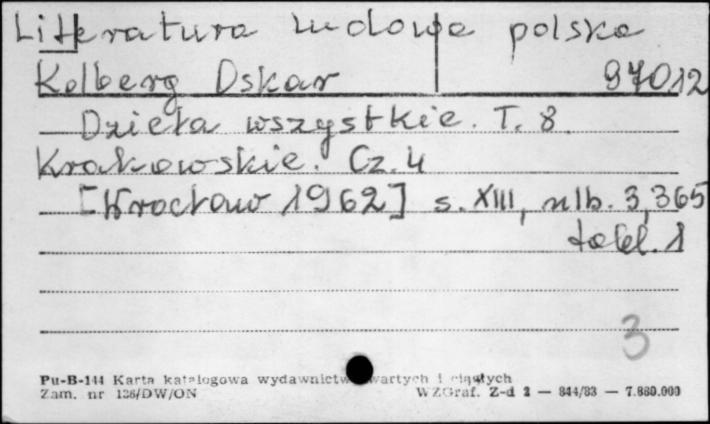 Literatura ludowa polska
Kolberg Oskar 97012
Dzieła wszystkie. T. 8.
Krakowskie. Cz. 4
[Wrocław 1962] s. XIII, nlb. 3, 365
tabl. 1
3
Pu-B-144 Karta katalogowa wydawnictw zwartych i ciągłych
Zam. nr 136/DW/ON WZGraf. Z-d 2 — 844/83 — 7.880.000